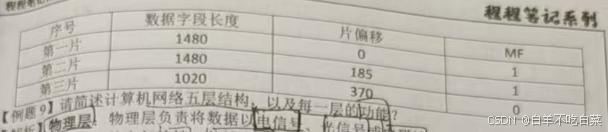 程程笔记系列
序号 数据字段长度 片偏移 MF
第一片 1480 0 1
第二片 1480 185 1
第三片 1020 370 0
【例题 9】请简述计算机网络五层结构，以及每一层的功能？
物理层：物理层负责将数据以电信号、光信号
CSDN @白羊不吃白菜